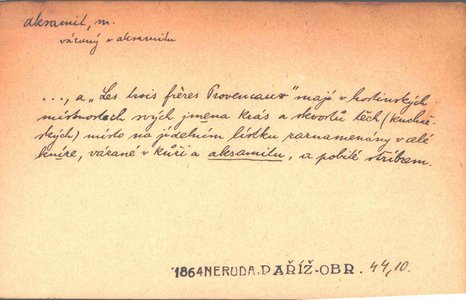 aksamit, m.
vázaný v aksamitu
..., a „Les trois frères Provencaux" mají v hostinských
místnostech svých jména krás a skvostů těch (kuchař-
ských) místo na jídelním lístku zaznamenány v celé
knize, vázané v kůži a aksamitu, a pobité stříbrem.
1864 NERUDA, PAŘÍŽ-OBR. 44,10.